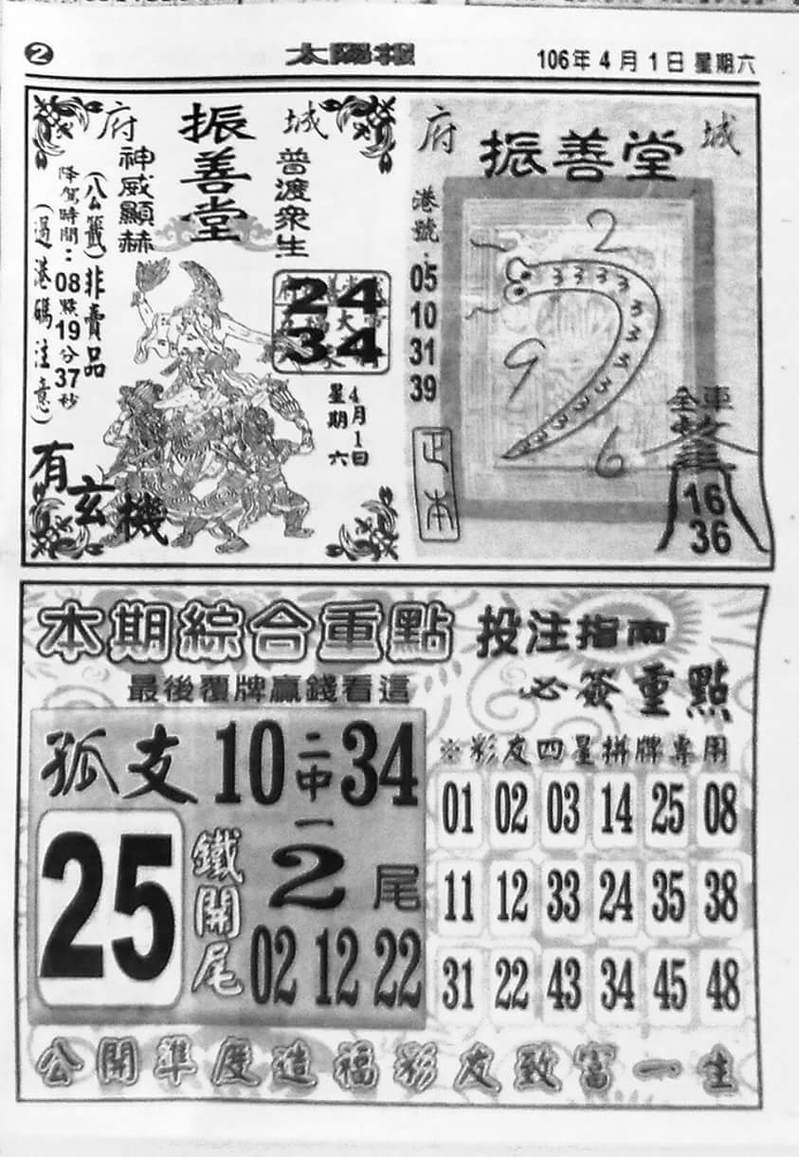 2
太陽報
106年4月1日 星期六
府
城
振善堂
神威顯赫
普渡眾生
(公籤)非賣品
降駕時間：08點19分37秒
(過港碼注意)
24
34
4月1日
星期六
有玄機
府
城
振善堂
港號：
05
10
31
39
正本
2
9
6
3 3 3 3 3 3 3 3 3 3 3 3
全車
16
36
本期綜合重點
投注指南
最後覆牌贏錢看這
必簽重點
孤支
10
二中一
34
25
鐵開尾
2尾
02 12 22
※彩友四星拼牌專用
01 02 03 14 25 08
11 12 33 24 35 38
31 22 43 34 45 48
公開準度造福彩友致富一生